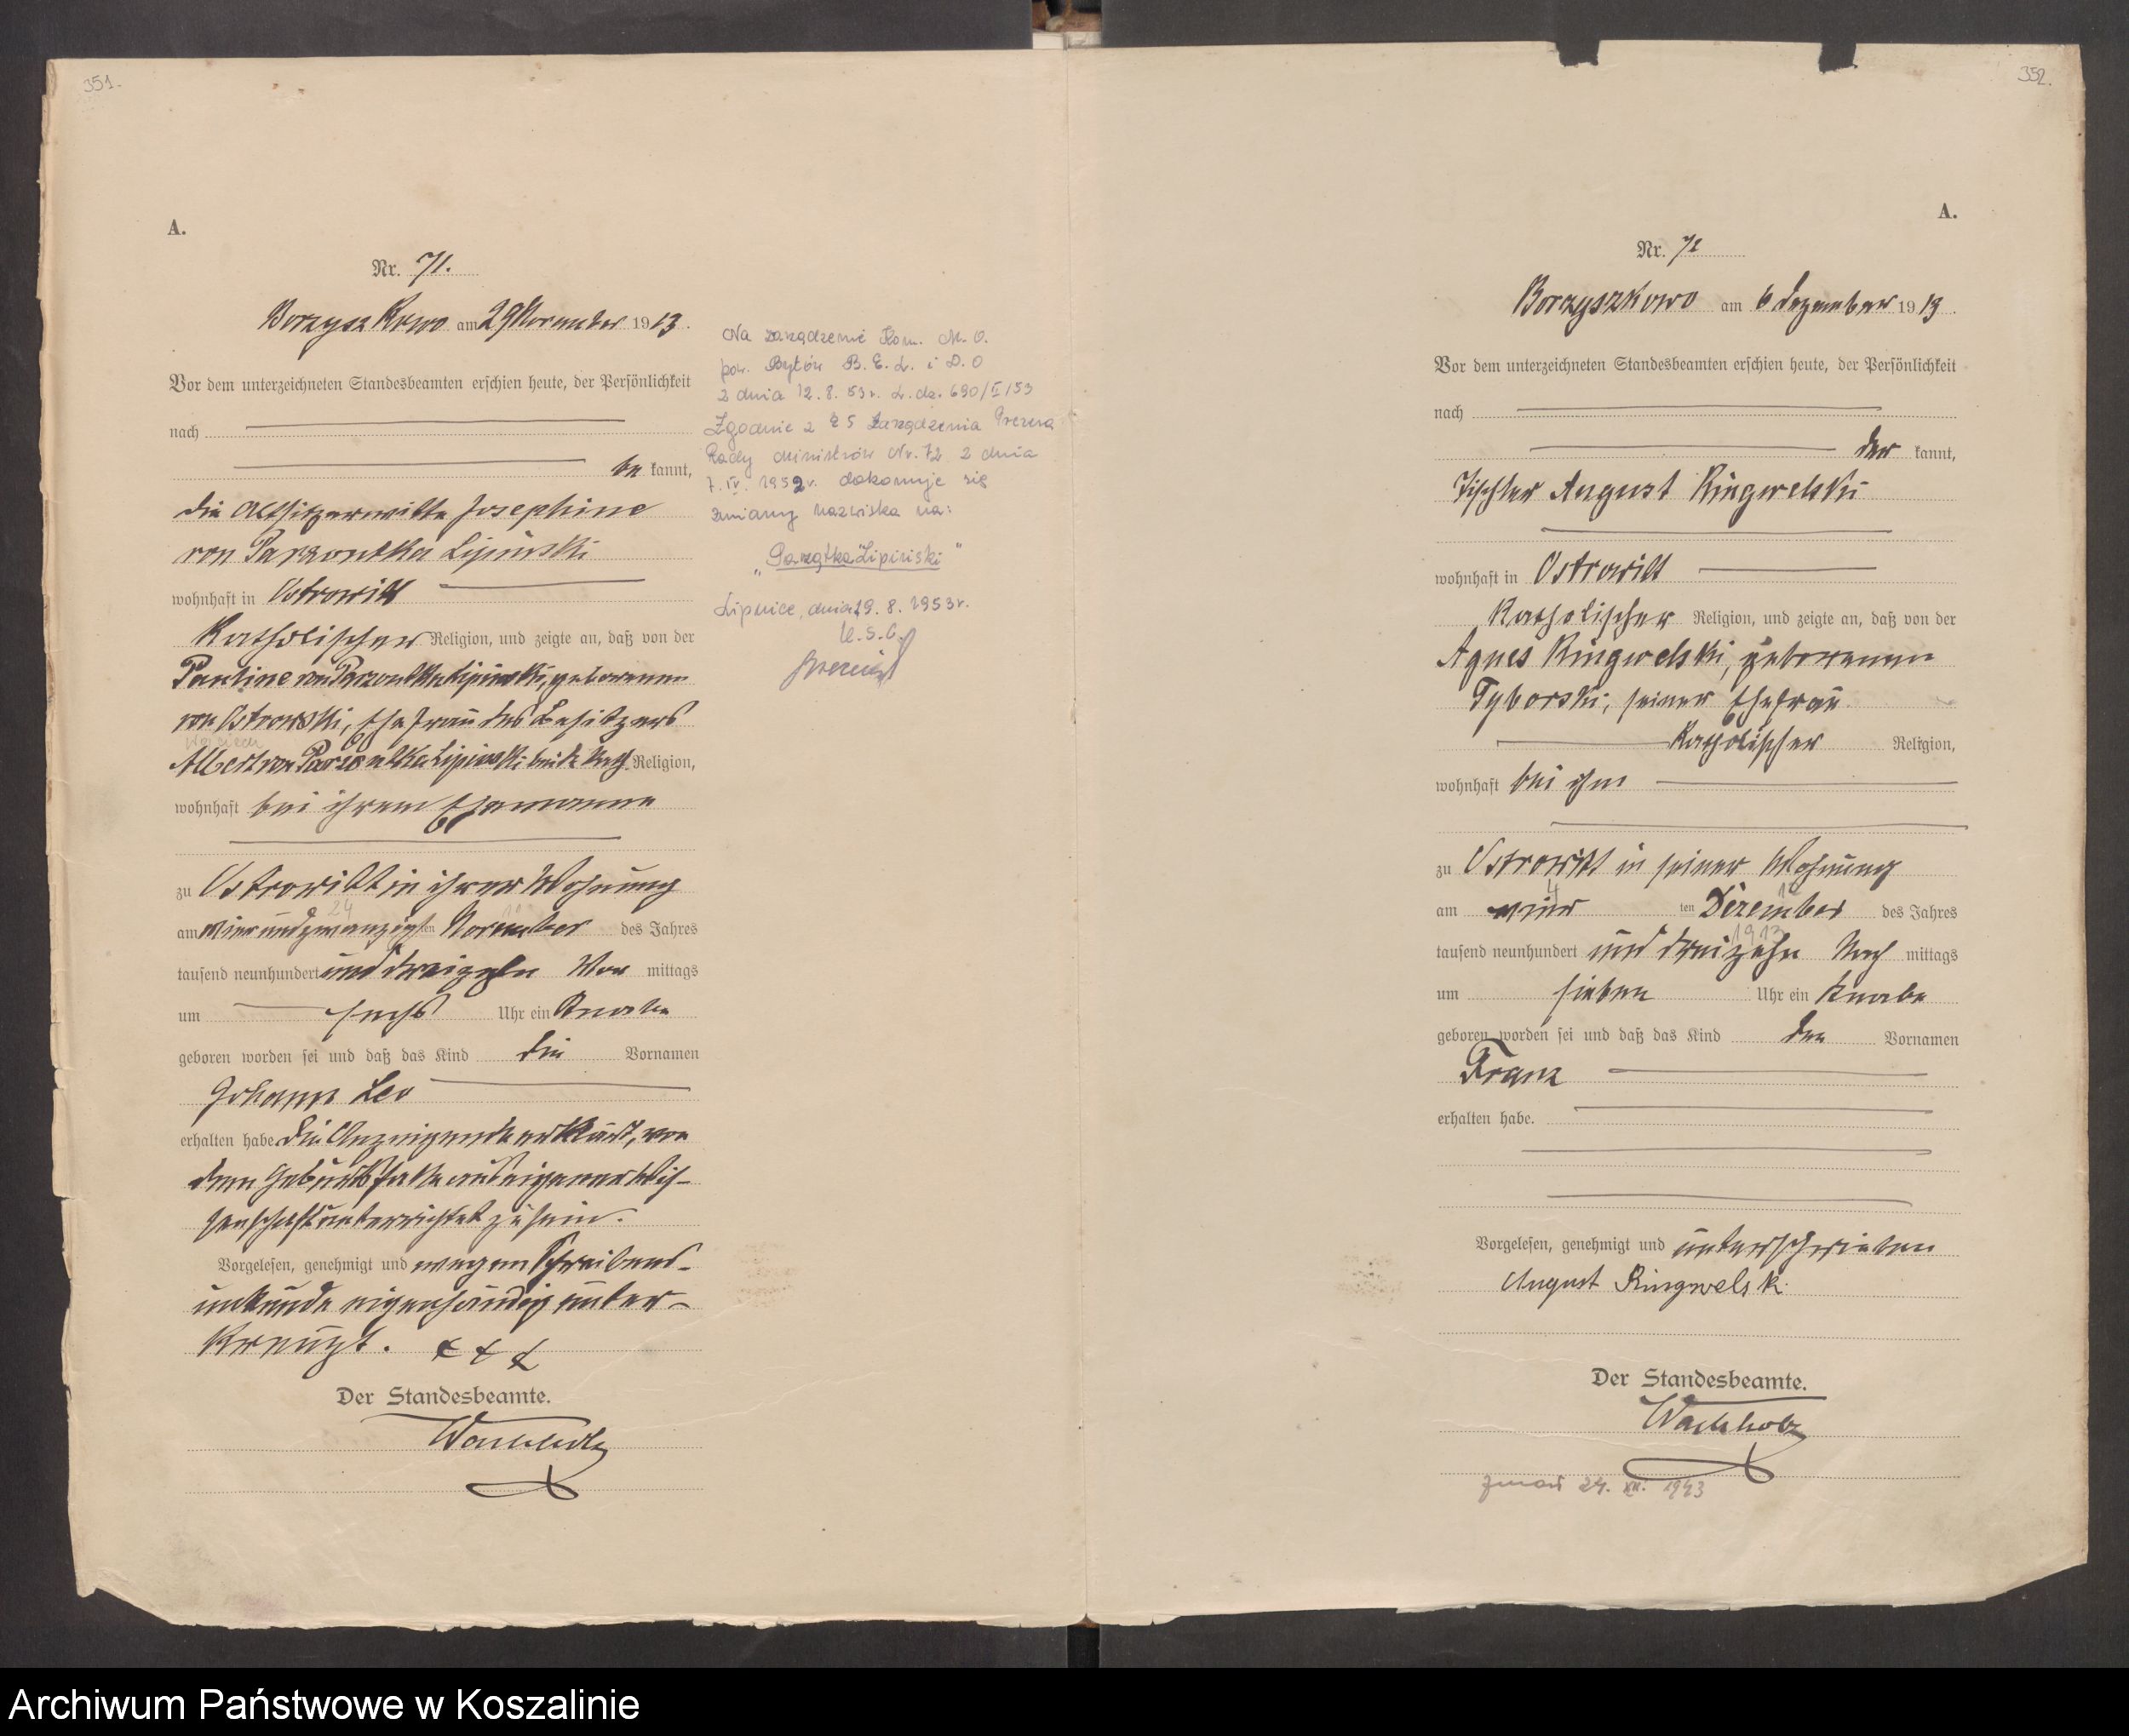 351.
A.
Nr. 71.
Borzyszkowo am 29 November 1913.
Vor dem unterzeichneten Standesbeamten erschien heute, der Persönlichkeit
nach
be kannt,
die Altsitzerwittwe Josephine
von Parzontka Lipinski
wohnhaft in Ostrowitt
katholischer Religion, und zeigte an, daß von der
Pauline von Parzontka Lipinski, geborenen
von Ostrowski, Ehefrau des Besitzers
Albert von Parzontka Lipinski beide kath. Religion,
wohnhaft bei ihrem Ehemanne
zu Ostrowitt in ihrer Wohnung
24
am vierundzwanzigsten November des Jahres
tausend neunhundert und dreizehn Vor mittags
um sechs Uhr ein Knabe
geboren worden sei und daß das Kind die Vornamen
Johann Leo
erhalten habe. Die Anzeigende erklärt, von
dem Geburtsfalle aus eigener Wis-
senschaft unterrichtet zu sein.
Vorgelesen, genehmigt und wegen Schreibens-
unkunde eigenhändig unter-
kreuzt. + + +
Der Standesbeamte.
Wachholz
Na zarządzenie Kom. M. O.
pow. Bytów B. E. L. i D. O
z dnia 12. 8. 53 r. L. dz. 690/I/53
Zgodnie z § 5 Zarządzenia Prezesa
Rady Ministrów Nr. 72 z dnia
7. IV. 1952 r. dokonuje się
zmiany nazwiska na:
„Parzątka Lipiński"
Lipnice, dnia 19. 8. 1953 r.
U. S. C.
352.
A.
Nr. 72
Borzyszkowo am 6 Dezember 1913.
Vor dem unterzeichneten Standesbeamten erschien heute, der Persönlichkeit
nach
der kannt,
Tischler August Ringwelski
wohnhaft in Ostrowitt
katholischer Religion, und zeigte an, daß von der
Agnes Ringwelski, geborenen
Tyborski, seiner Ehefrau
katholischer Religion,
wohnhaft bei ihm
zu Ostrowitt in seiner Wohnung
4 12
am vier ten Dezember des Jahres
1913
tausend neunhundert und dreizehn Nach mittags
um sieben Uhr ein Knabe
geboren worden sei und daß das Kind den Vornamen
Franz
erhalten habe.
Vorgelesen, genehmigt und unterschrieben
August Ringwelski
Der Standesbeamte.
Wachholz
zmarł 24. XII. 1943
Archiwum Państwowe w Koszalinie